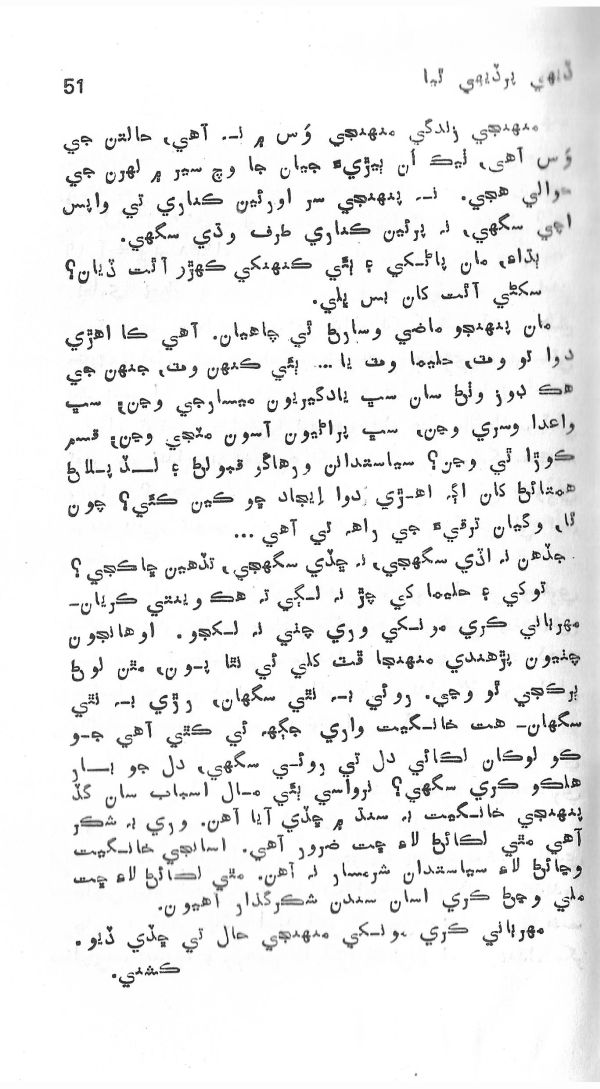 ڏيهي پرڏيهي ٿيا 51
منهنجي زندگي منهنجي وَس ۾ نہ آهي، حالتن جي
وَس آهي، ٺيڪ اُن ٻيڙيءَ جيان جا وچ سير ۾ لهرن جي
حوالي هجي. نہ پنهنجي سر اورئين ڪناري تي واپس
اچي سگهي، نہ پرئين ڪناري طرف وڌي سگهي.
ٻڌاءِ، مان پاڻکي ۽ ٻئي ڪنهنکي ڪهڙو آٿت ڏيان؟
سڪڻي آٿت کان بس ڀلي.
مان پنهنجو ماضي وسارڻ ٿي چاهيان. آهي ڪا اهڙي
دوا تو وٽ، حليما وٽ يا... ٻئي ڪنهن وٽ، جنهن جي
هڪ ڊوز وٺڻ سان سڀ يادگيريون ميسارجي وڃن؛ سڀ
واعدا وسري وڃن، سڀ پراڻيون آسون مٽجي وڃن؛ قسم
ڪوڙا ٿي وڃن؟ سياستدانن ورهاڱو قبولڻ ۽ لڏپلاڻ
همٿائڻ کان اڳہ اهڙي دوا اِيجاد ڇو ڪين ڪئي؟ چون
ٿا، وگيان ترقيءَ جي راهہ تي آهي ...
جڏهن نہ اڏي سگهجي، نہ ڇڏي سگهجي، تڏهين ڇاڪجي؟
توکي ۽ حليما کي چڙ نہ لڳي تہ هڪ وينتي ڪريان-
مهرباني ڪري مونکي وري چٺي نہ لکجو. اوهانجون
چٺيون پڙهندي منهنجا ڦٽ کلي ٿي ٿا پون، مٿن لوڻ
ٻرڪجي ٿو وڃي. روئي بہ نٿي سگهان، رڙي بہ نٿي
سگهان- هت خانگيت واري جڳهہ ئي ڪٿي آهي جو
ڪو لوڪان لڪائي دل تي روئي سگهي، دل جو بار
هلڪو ڪري سگهي؟ نرواسي ٻئي مال اسباب سان گڏ
پنهنجي خانگيت بہ سنڌ ۾ ڇڏي آيا آهن. وري بہ شڪر
آهي مٿي لڪائڻ لاءِ ڇت ضرور آهي. اسانجي خانگيت
وڃائڻ لاءِ سياستدان شرمسار نہ آهن. مٿي لڪائڻ لاءِ ڇت
ملي وڃڻ ڪري اسان سندن شڪرگذار آهيون.
مهرباني ڪري مونکي منهنجي حال تي ڇڏي ڏيو.
ڪشني.